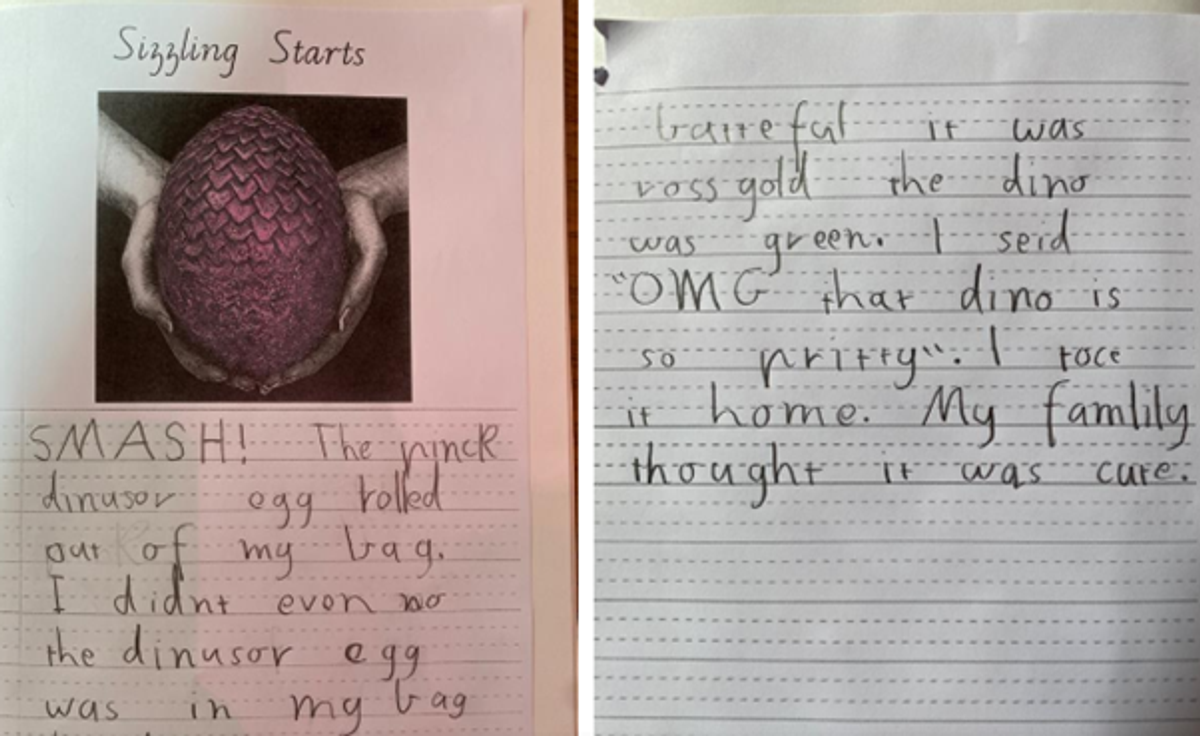 Sizzling Starts
SMASH! The pinck
dinusor egg rolled
out of my bag.
I didnt even no
the dinusor egg
was in my bag
it was
rossgold the dino
was green. I seid
"OMG that dino is
so pritty". I toce
it home. My famlily
thought it was cute.